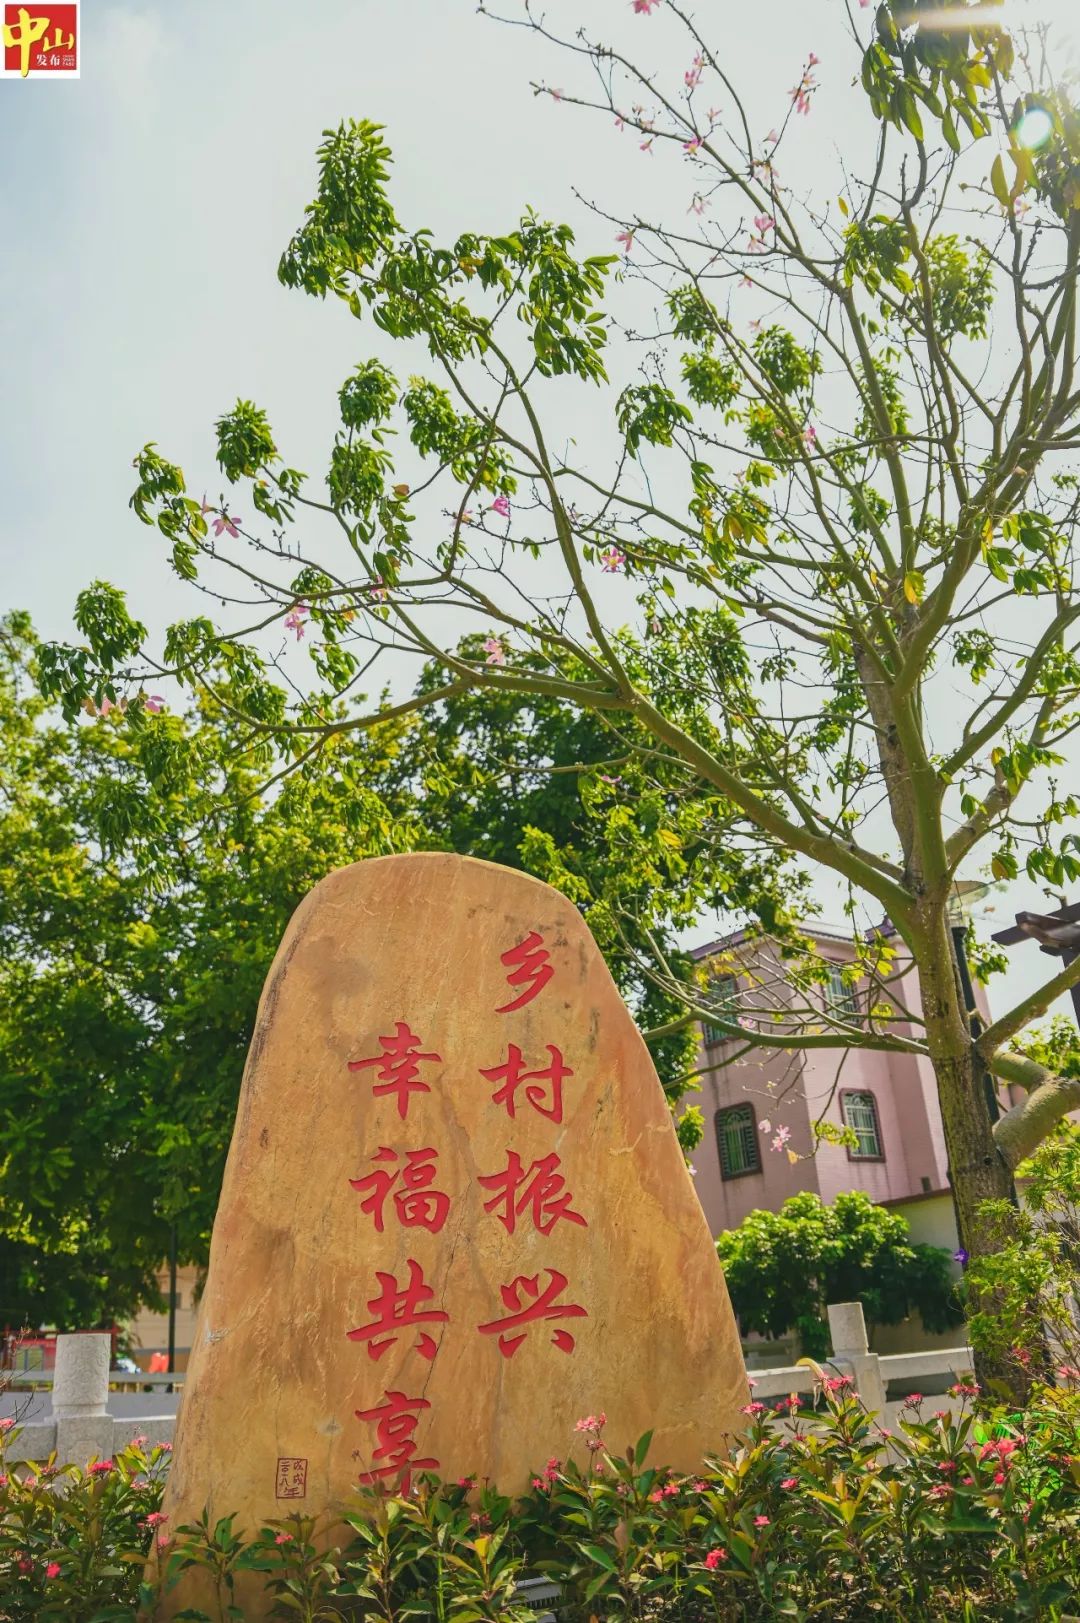 中山
发布
乡村振兴
幸福共享
戊戌年
二〇一八